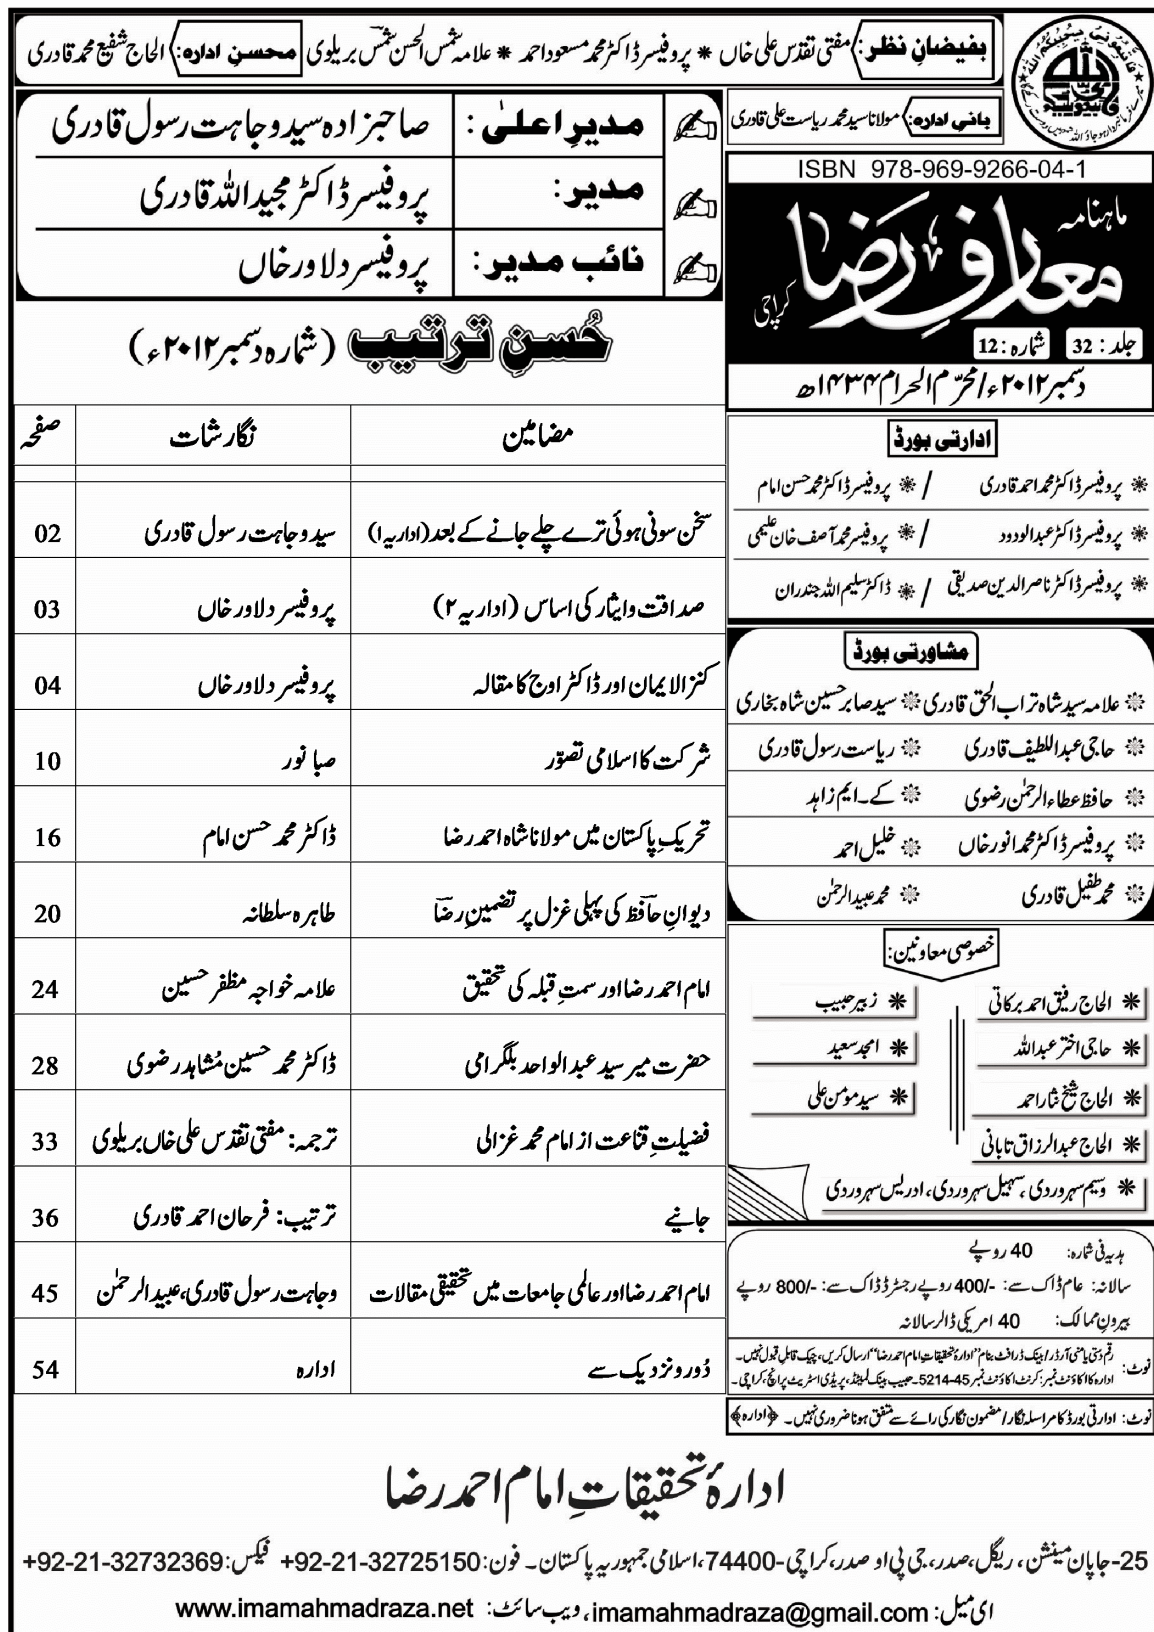 بفیضانِ نظر: مفتی تقدّس علی خاں * پروفیسر ڈاکٹر محمد مسعود احمد * علامہ شمس الحسن شمسؔ بریلوی محسنِ ادارہ: الحاج شفیع محمد قادری
بانی ادارہ: مولانا سید محمد ریاست علی قادری
ISBN 978-969-9266-04-1
ماہنامہ
معارفِ رضا
کراچی
جلد: 32 شمارہ: 12
دسمبر ۲۰۱۲ء/محرّم الحرام ۱۴۳۴ھ
مدیرِ اعلیٰ: صاحبزادہ سید وجاہت رسول قادری
مدیر: پروفیسر ڈاکٹر مجید اللہ قادری
نائب مدیر: پروفیسر دلاور خاں
حُسنِ ترتیب (شمارہ دسمبر ۲۰۱۲ء)
مضامین نگارشات صفحہ
سخن سونی ہوئی ترے چلے جانے کے بعد (اداریہ ۱) سید وجاہت رسول قادری 02
صداقت و ایثار کی اساس (اداریہ ۲) پروفیسر دلاور خاں 03
کنز الایمان اور ڈاکٹر اوج کا مقالہ پروفیسر دلاور خاں 04
شرکت کا اسلامی تصوّر صبا نور 10
تحریکِ پاکستان میں مولانا شاہ احمد رضا ڈاکٹر محمد حسن امام 16
دیوانِ حافظؔ کی پہلی غزل پر تضمینِ رضاؔ طاہرہ سلطانہ 20
امام احمد رضا اور سمتِ قبلہ کی تحقیق علامہ خواجہ مظفر حسین 24
حضرت میر سید عبد الواحد بلگرامی ڈاکٹر محمد حسین مُشاہد رضوی 28
فضیلتِ قناعت از امام محمد غزالی ترجمہ: مفتی تقدّس علی خاں بریلوی 33
جانیے ترتیب: فرحان احمد قادری 36
امام احمد رضا اور عالمی جامعات میں تحقیقی مقالات وجاہت رسول قادری، عبید الرحمٰن 45
دُور و نزدیک سے ادارہ 54
ادارتی بورڈ
پروفیسر ڈاکٹر محمد احمد قادری / پروفیسر ڈاکٹر محمد حسن امام
پروفیسر ڈاکٹر عبد الودود / پروفیسر محمد آصف خان علیمی
پروفیسر ڈاکٹر ناصر الدین صدیقی / ڈاکٹر سلیم اللہ جندران
مشاورتی بورڈ
علامہ سید شاہ تراب الحق قادری سید صابر حسین شاہ بخاری
حاجی عبد اللطیف قادری ریاست رسول قادری
حافظ عطاء الرحمٰن رضوی کے۔ ایم زاہد
پروفیسر ڈاکٹر محمد انور خاں خلیل احمد
محمد طفیل قادری محمد عبید الرحمٰن
خصوصی معاونین:
* الحاج رفیق احمد برکاتی * زبیر حبیب
* حاجی اختر عبد اللہ * امجد سعید
* الحاج شیخ نثار احمد * سید مومن علی
* الحاج عبد الرزاق تابانی
* وسیم سہروردی، سہیل سہروردی، ادریس سہروردی
ہدیہ فی شمارہ: 40 روپے
سالانہ: عام ڈاک سے: -/400 روپے رجسٹرڈ ڈاک سے: -/800 روپے
بیرونِ ممالک: 40 امریکی ڈالر سالانہ
نوٹ: رقم دستی یا منی آرڈر/بینک ڈرافٹ بنام "ادارۂ تحقیقاتِ امام احمد رضا" ارسال کریں، چیک قابلِ قبول نہیں۔
ادارہ کا اکاؤنٹ نمبر: کرنٹ اکاؤنٹ نمبر 45-5214۔ حبیب بینک لمیٹڈ، پریڈی اسٹریٹ برانچ، کراچی۔
نوٹ: ادارتی بورڈ کا مراسلہ نگار/مضمون نگار کی رائے سے متفق ہونا ضروری نہیں۔ ﴿ادارہ﴾
ادارۂ تحقیقاتِ امام احمد رضا
25-جاپان مینشن، ریگل، صدر، جی پی او صدر، کراچی-74400، اسلامی جمہوریہ پاکستان۔ فون: 32725150-21-92+ فیکس: 32732369-21-92+
ای میل: imamahmadraza@gmail.com، ویب سائٹ: www.imamahmadraza.net